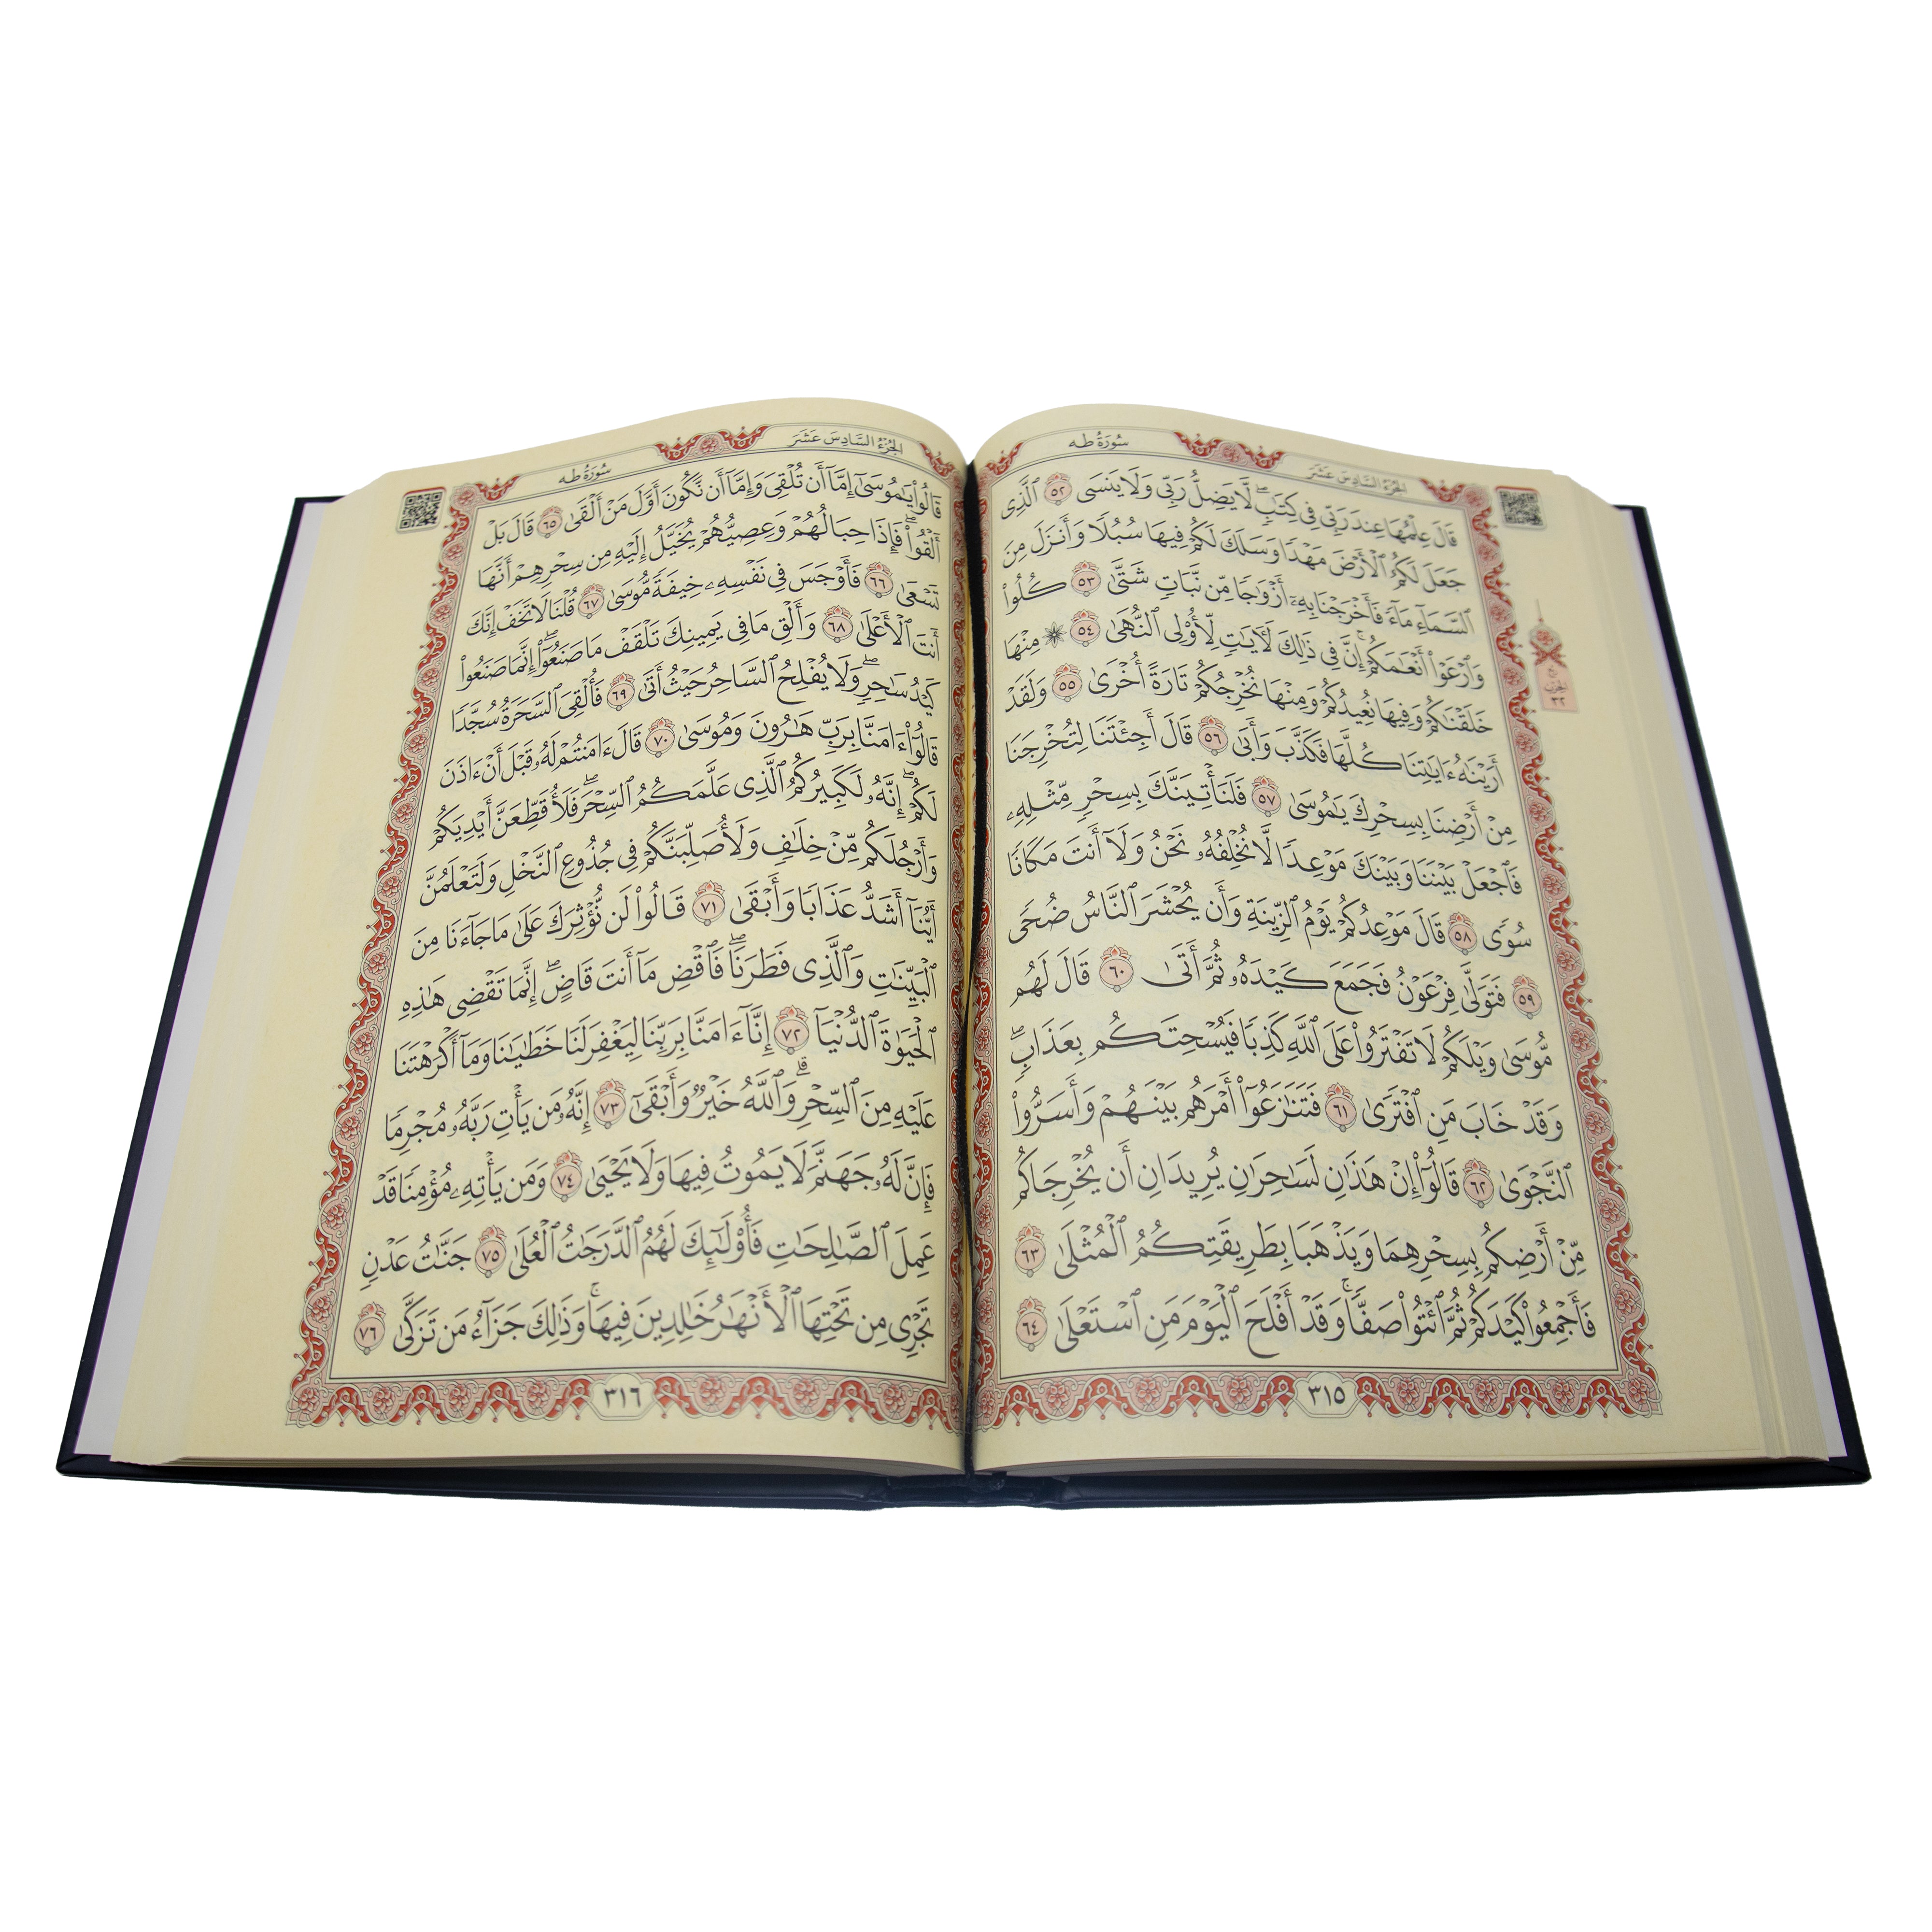 سُورَةُ طه
الجُزْءُ السَّادِسَ عَشَرَ
قَالَ عِلْمُهَا عِندَ رَبِّى فِى كِتَٰبٍۖ لَّا يَضِلُّ رَبِّى وَلَا يَنسَى ٥٢ ٱلَّذِى
جَعَلَ لَكُمُ ٱلْأَرْضَ مَهْدًا وَسَلَكَ لَكُمْ فِيهَا سُبُلًا وَأَنزَلَ مِنَ
ٱلسَّمَآءِ مَآءً فَأَخْرَجْنَا بِهِۦٓ أَزْوَٰجًا مِّن نَّبَاتٍ شَتَّىٰ ٥٣ كُلُوا۟
وَٱرْعَوْا۟ أَنْعَٰمَكُمْۚ إِنَّ فِى ذَٰلِكَ لَءَايَٰتٍ لِّأُو۟لِى ٱلنُّهَىٰ ٥٤ ۞ مِنْهَا
خَلَقْنَٰكُمْ وَفِيهَا نُعِيدُكُمْ وَمِنْهَا نُخْرِجُكُمْ تَارَةً أُخْرَىٰ ٥٥ وَلَقَدْ
أَرَيْنَٰهُ ءَايَٰتِنَا كُلَّهَا فَكَذَّبَ وَأَبَىٰ ٥٦ قَالَ أَجِئْتَنَا لِتُخْرِجَنَا
مِنْ أَرْضِنَا بِسِحْرِكَ يَٰمُوسَىٰ ٥٧ فَلَنَأْتِيَنَّكَ بِسِحْرٍ مِّثْلِهِۦ
فَٱجْعَلْ بَيْنَنَا وَبَيْنَكَ مَوْعِدًا لَّا نُخْلِفُهُۥ نَحْنُ وَلَآ أَنتَ مَكَانًا
سُوًى ٥٨ قَالَ مَوْعِدُكُمْ يَوْمُ ٱلزِّينَةِ وَأَن يُحْشَرَ ٱلنَّاسُ ضُحًى
٥٩ فَتَوَلَّىٰ فِرْعَوْنُ فَجَمَعَ كَيْدَهُۥ ثُمَّ أَتَىٰ ٦٠ قَالَ لَهُم
مُّوسَىٰ وَيْلَكُمْ لَا تَفْتَرُوا۟ عَلَى ٱللَّهِ كَذِبًا فَيُسْحِتَكُم بِعَذَابٍۖ
وَقَدْ خَابَ مَنِ ٱفْتَرَىٰ ٦١ فَتَنَٰزَعُوٓا۟ أَمْرَهُم بَيْنَهُمْ وَأَسَرُّوا۟
ٱلنَّجْوَىٰ ٦٢ قَالُوٓا۟ إِنْ هَٰذَٰنِ لَسَٰحِرَٰنِ يُرِيدَانِ أَن يُخْرِجَاكُم
مِّنْ أَرْضِكُم بِسِحْرِهِمَا وَيَذْهَبَا بِطَرِيقَتِكُمُ ٱلْمُثْلَىٰ ٦٣
فَأَجْمِعُوا۟ كَيْدَكُمْ ثُمَّ ٱئْتُوا۟ صَفًّاۚ وَقَدْ أَفْلَحَ ٱلْيَوْمَ مَنِ ٱسْتَعْلَىٰ ٦٤
٣١٥
الحزب
٣٢
الجُزْءُ السَّادِسَ عَشَرَ
سُورَةُ طه
قَالُوا۟ يَٰمُوسَىٰٓ إِمَّآ أَن تُلْقِىَ وَإِمَّآ أَن نَّكُونَ أَوَّلَ مَنْ أَلْقَىٰ ٦٥ قَالَ بَلْ
أَلْقُوا۟ۖ فَإِذَا حِبَالُهُمْ وَعِصِيُّهُمْ يُخَيَّلُ إِلَيْهِ مِن سِحْرِهِمْ أَنَّهَا
تَسْعَىٰ ٦٦ فَأَوْجَسَ فِى نَفْسِهِۦ خِيفَةً مُّوسَىٰ ٦٧ قُلْنَا لَا تَخَفْ إِنَّكَ
أَنتَ ٱلْأَعْلَىٰ ٦٨ وَأَلْقِ مَا فِى يَمِينِكَ تَلْقَفْ مَا صَنَعُوٓا۟ۖ إِنَّمَا صَنَعُوا۟
كَيْدُ سَٰحِرٍۖ وَلَا يُفْلِحُ ٱلسَّاحِرُ حَيْثُ أَتَىٰ ٦٩ فَأُلْقِىَ ٱلسَّحَرَةُ سُجَّدًا
قَالُوٓا۟ ءَامَنَّا بِرَبِّ هَٰرُونَ وَمُوسَىٰ ٧٠ قَالَ ءَامَنتُمْ لَهُۥ قَبْلَ أَنْ ءَاذَنَ
لَكُمْۖ إِنَّهُۥ لَكَبِيرُكُمُ ٱلَّذِى عَلَّمَكُمُ ٱلسِّحْرَۖ فَلَأُقَطِّعَنَّ أَيْدِيَكُمْ
وَأَرْجُلَكُم مِّنْ خِلَٰفٍ وَلَأُصَلِّبَنَّكُمْ فِى جُذُوعِ ٱلنَّخْلِ وَلَتَعْلَمُنَّ
أَيُّنَآ أَشَدُّ عَذَابًا وَأَبْقَىٰ ٧١ قَالُوا۟ لَن نُّؤْثِرَكَ عَلَىٰ مَا جَآءَنَا مِنَ
ٱلْبَيِّنَٰتِ وَٱلَّذِى فَطَرَنَاۖ فَٱقْضِ مَآ أَنتَ قَاضٍۖ إِنَّمَا تَقْضِى هَٰذِهِ
ٱلْحَيَوٰةَ ٱلدُّنْيَآ ٧٢ إِنَّآ ءَامَنَّا بِرَبِّنَا لِيَغْفِرَ لَنَا خَطَٰيَٰنَا وَمَآ أَكْرَهْتَنَا
عَلَيْهِ مِنَ ٱلسِّحْرِۗ وَٱللَّهُ خَيْرٌ وَأَبْقَىٰٓ ٧٣ إِنَّهُۥ مَن يَأْتِ رَبَّهُۥ مُجْرِمًا
فَإِنَّ لَهُۥ جَهَنَّمَ لَا يَمُوتُ فِيهَا وَلَا يَحْيَىٰ ٧٤ وَمَن يَأْتِهِۦ مُؤْمِنًا قَدْ
عَمِلَ ٱلصَّٰلِحَٰتِ فَأُو۟لَٰٓئِكَ لَهُمُ ٱلدَّرَجَٰتُ ٱلْعُلَىٰ ٧٥ جَنَّٰتُ عَدْنٍ
تَجْرِى مِن تَحْتِهَا ٱلْأَنْهَٰرُ خَٰلِدِينَ فِيهَاۚ وَذَٰلِكَ جَزَآءُ مَن تَزَكَّىٰ ٧٦
٣١٦